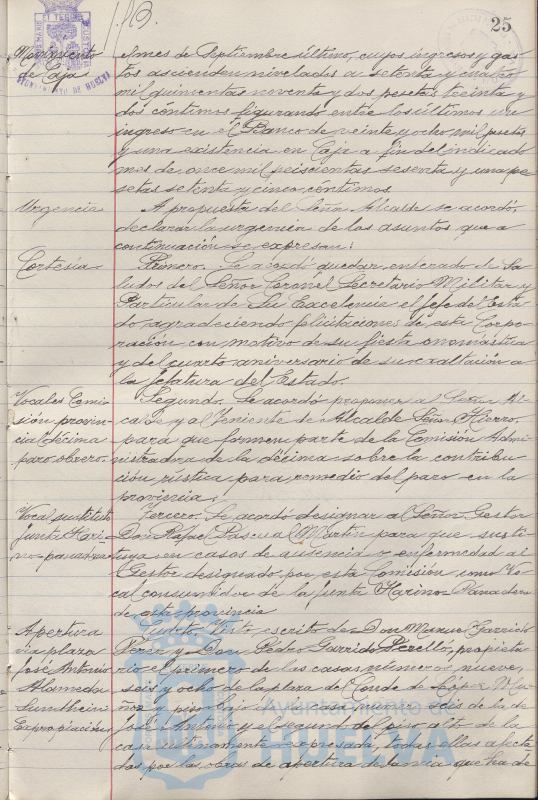 25
Movimiento
de Caja
el mes de Septiembre último, cuyos ingresos y gas-
tos ascienden nivelados a setenta y cuatro
mil quinientas noventa y dos pesetas treinta y
dos céntimos figurando entre los últimos un
ingreso en el Banco de veinte y ocho mil pesetas
y una existencia en Caja a fin del indicado
mes de once mil seiscientas sesenta y una pe-
setas setenta y cinco céntimos
Urgencia
A propuesta del Señor Alcalde se acordó,
declarar la urgencia de los asuntos que a
continuación se expresan:
Cortesía
Primero. Se acordó quedar enterado de Sa-
ludos del Señor Coronel Secretario Militar y
Particular de Su Excelencia el Jefe del Esta-
do, agradeciendo felicitaciones de esta Corpo-
ración con motivo de su fiesta onomástica
y del cuarto aniversario de su exaltación a
la jefatura del Estado.
Vocales Comi-
sión provin-
cial décima
paro obrero
Segundo. Se acordó proponer al Señor Al-
calde y al Teniente de Alcalde Señor Hierro,
para que formen parte de la Comisión Admi-
nistradora de la décima sobre la contribu-
ción rústica para remedio del paro en la
provincia.
Vocal sustituto
Junta Hari-
no-panadera
Tercero. Se acordó designar al Señor Gestor
Don Rafael Pascual Martín para que susti-
tuya en casos de ausencia o enfermedad al
Gestor designado por esta Comisión como Vo-
cal consumidor de la Junta Harino Panadera
de esta provincia
Apertura
via plaza
José Antonio
Alameda
Sundheim
Expropiación
Cuarto. Visto escrito de Don Manuel Garrido
Perez y Don Pedro Garrido Perello, propieta-
rio el primero de las casas números nueve,
seis y ocho de la plaza de Conde de López Mu-
ñoz y piso bajo de la casa número seis de la de
José Antonio y el segundo del piso alto de la
casa ultimamente expresada, todas ellas afecta-
das por las obras de apertura de la via que ha de
Ayuntamiento de
HUELVA